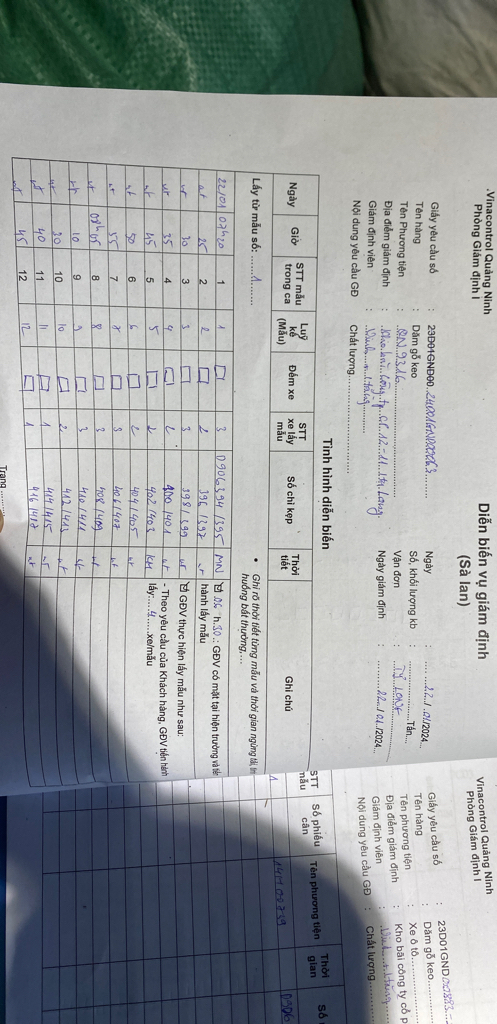 Vinacontrol Quảng Ninh
Phòng Giám định I
Diễn biến vụ giám định
(Sà lan)
Giấy yêu cầu số : 23D01GND00
Ngày : 22/01/2024
Tên hàng : Dăm gỗ keo
Số, khối lượng kb : Tấn
Tên Phương tiện : QN 9316
Vận đơn :
Địa điểm giám định :
Ngày giám định : 22/01/2024
Giám định viên :
Nội dung yêu cầu GĐ : Chất lượng
Tình hình diễn biến
Lấy từ mẫu số: 1
• Ghi rõ thời tiết từng mẫu và thời gian ngừng
huống bất thường,...
Ngày Giờ STT mẫu trong ca Luỹ kế (Mẫu) Đếm xe STT xe lấy mẫu Số chì kẹp Thời tiết Ghi chú
22/01 07h20 1 1 3 0906394/395 MN 06 h 30 : GĐV có mặt tại hiện trường và
nt 25 2 2 2 396/397 nt hành lấy mẫu
nt 30 3 3 3 398/399 nt GĐV thực hiện lấy mẫu như sau:
nt 35 4 4 2 400/401 nt - Theo yêu cầu của Khách hàng, GĐV tiến hành
nt 45 5 5 2 402/403 lấy: 4 xe/mẫu
nt 50 6 6 2 404/405 nt
nt 55 7 7 3 406/407 nt
nt 08h05 8 8 3 408/409 nt
nt 10 9 9 3 410/411 nt
nt 30 10 10 2 412/413 nt
nt 40 11 11 1 414/415 nt
nt 45 12 12 1 416/417 nt
Trang
Vinacontrol Quảng Ninh
Phòng Giám định I
Giấy yêu cầu số : 23D01GND
Tên hàng : Dăm gỗ keo
Tên phương tiện : Xe ô tô
Địa điểm giám định : Kho bãi công ty cổ p
Giám định viên :
Nội dung yêu cầu GĐ : Chất lượng
STT mẫu Số phiếu cân Tên phương tiện Thời gian Số
1